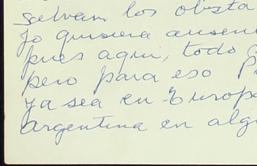 salvam los obsta
yo quisiera ausen
pues aqui, todo
pero para eso p
ya sea en Europa
argentina en alg